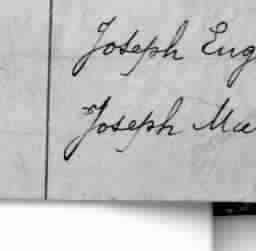 Joseph Eug
Joseph Ma